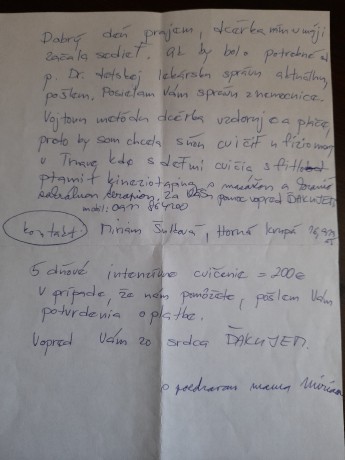 Dobrý deň prajem, dcérka mim v máji
začala sedieť. Ak by bolo potrebné od
p. Dr. detskej lekárku správu aktuálnu,
pošlem. Posielam Vám správu z nemocnice.
Vojtovu metódu dcérka vzdoruje a plače,
preto by som chcela s ňou cvičiť u fyziomom
v Trnave kde s deťmi cvičia s fit
kineziotaping, s masážou a
terapiou, za Vašu pomoc vopred ĎAKUJEM
mobil:
kontakt: Miriam Šultová, Horná Krupá
5 dňové intenzívne cvičenie = 200€
V prípade, že nám pomôžete, pošlem Vám
potvrdenia o platbe.
Vopred Vám zo srdca ĎAKUJEM.
S pozdravom mama Miriam